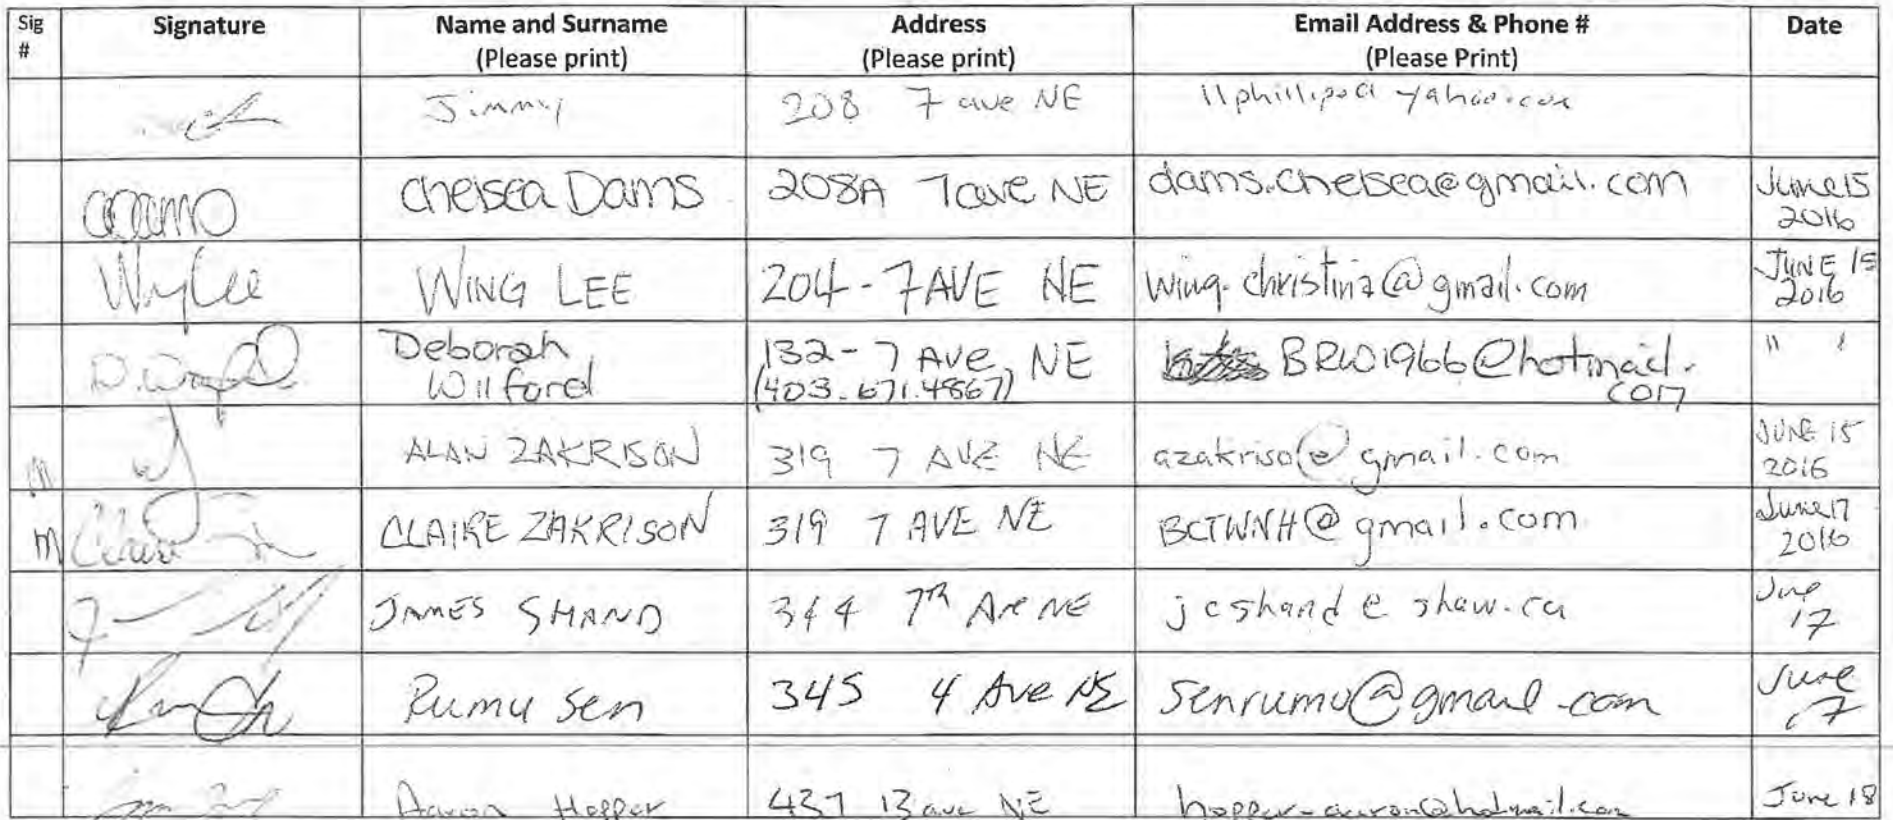 Sig # Signature Name and Surname (Please print) Address (Please print) Email Address & Phone # (Please Print) Date
Jimmy 208 7 ave NE
Chelsea Dams 208A 7 ave NE dams.chelsea@gmail.com June 15 2016
Wing Lee WING LEE 204 - 7 AVE NE wing.christina@gmail.com JUNE 15 2016
Deborah Wilford 132 - 7 Ave NE (403.671.4867) BRW1966@hotmail.com "
M ALAN ZAKRISON 319 7 AVE NE azakriso@gmail.com JUNE 15 2016
M Claire CLAIRE ZAKRISON 319 7 AVE NE BCTWNH@gmail.com June 17 2016
JAMES SHAND 344 7th Ave NE jcshand@shaw.ca June 17
Rumu Sen 345 4 Ave NE senrumu@gmail.com June 17
Aaron Hopper 437 13 ave NE hopper-aaron@hotmail.com June 18